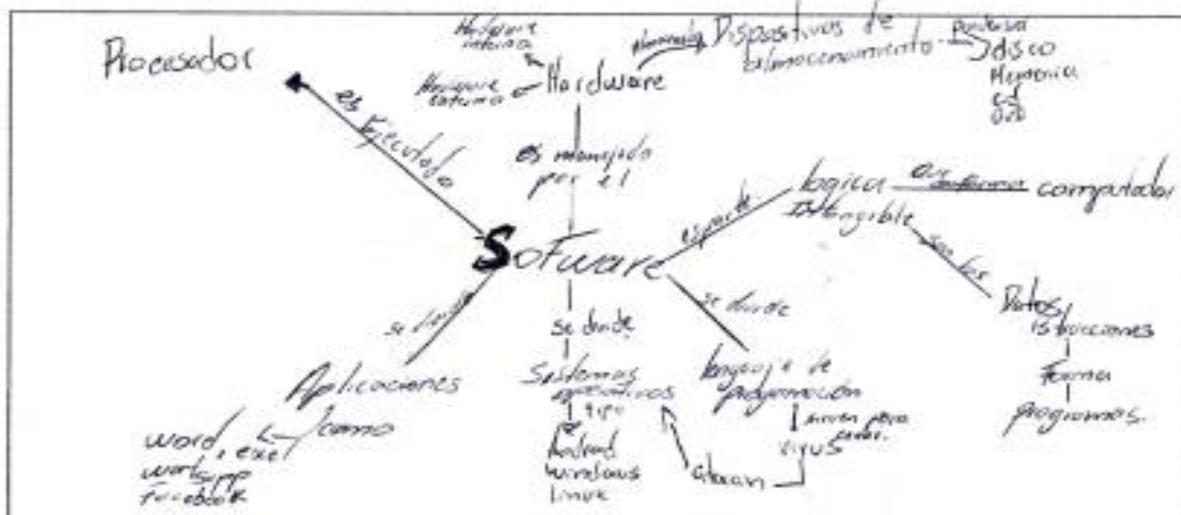 Procesador
es Ejecutado
Hardware
interno
Hardware
externo
Hardware
Dispositivos de
almacenamiento
disco
Memoria
cd
es manejado
por el
Software
es parte
logica
Intangible
computador
son los
Datos
istrucciones
Forma
programas.
se divide
Aplicaciones
como
word, exel
Facebook
se divide
Sistemas
operativos
tipo
Android
windows
linux
se divide
lenguaje de
programación
sirven para
virus
atacan